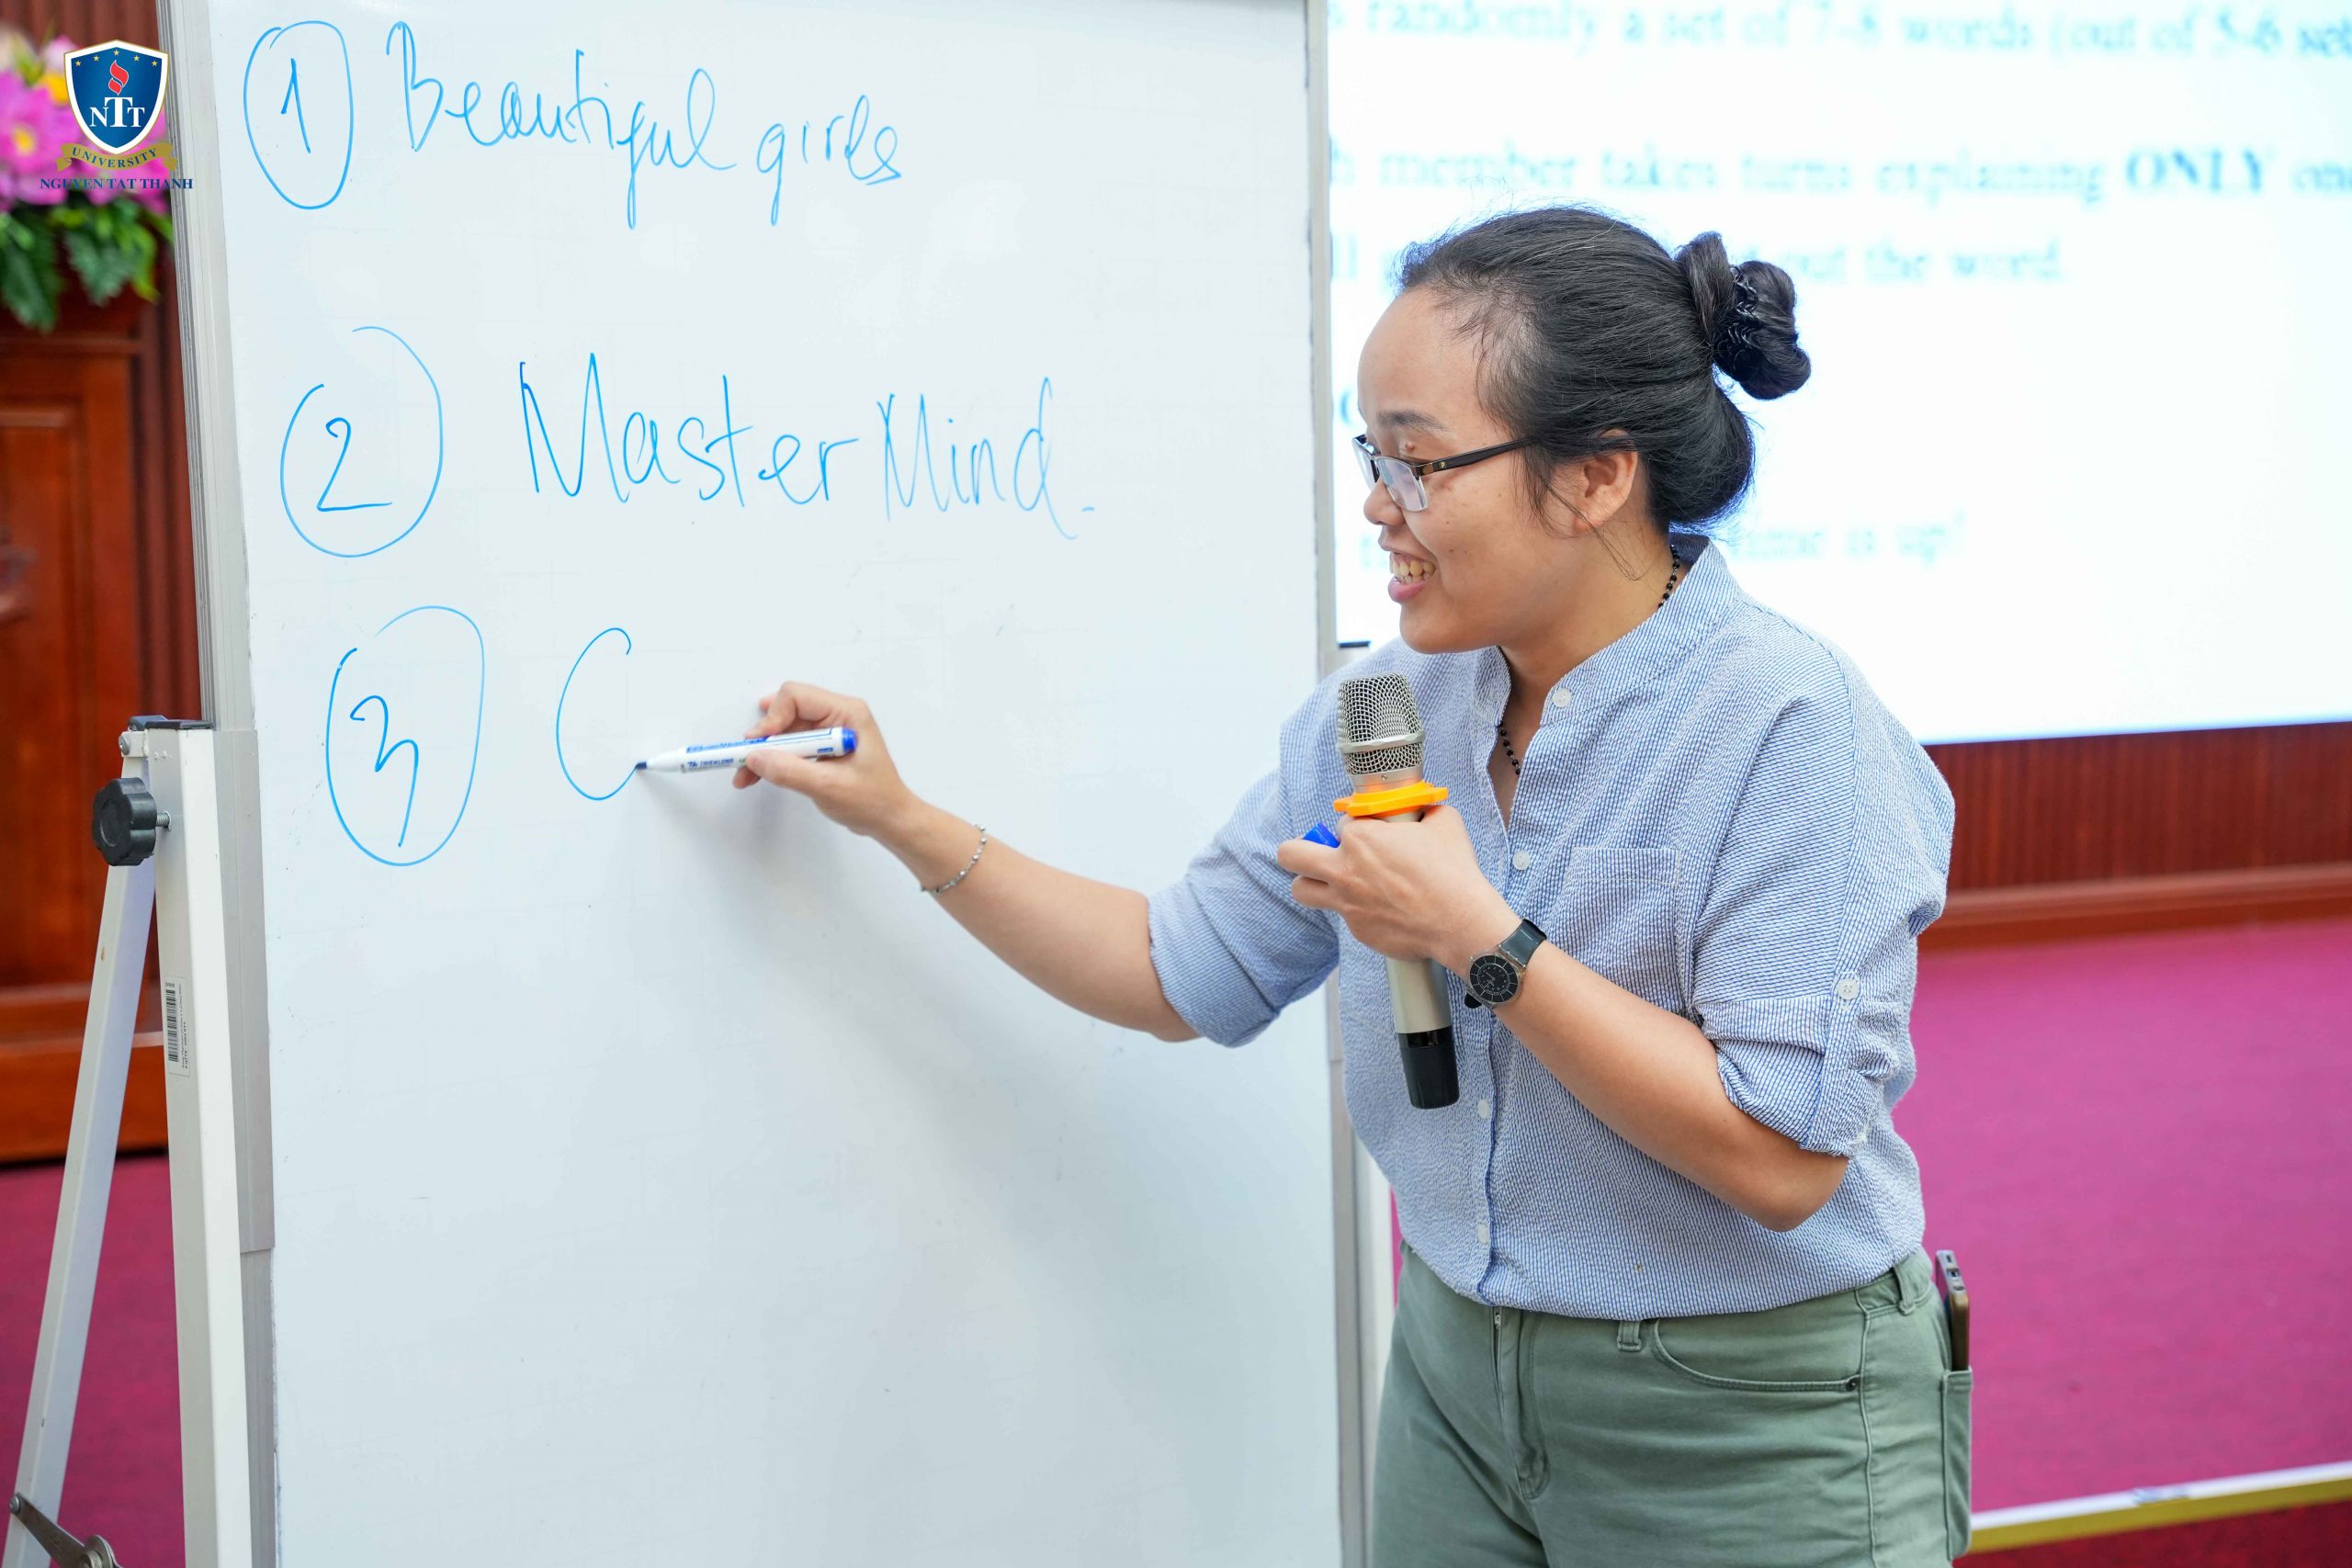 NTT
UNIVERSITY
NGUYEN TAT THANH
1 Beautiful girls
2 Master Mind.
3 C
randomly a set of 7-8 words (out of 5-6 set
member takes turns explaining ONLY on
out the word.
time is up!